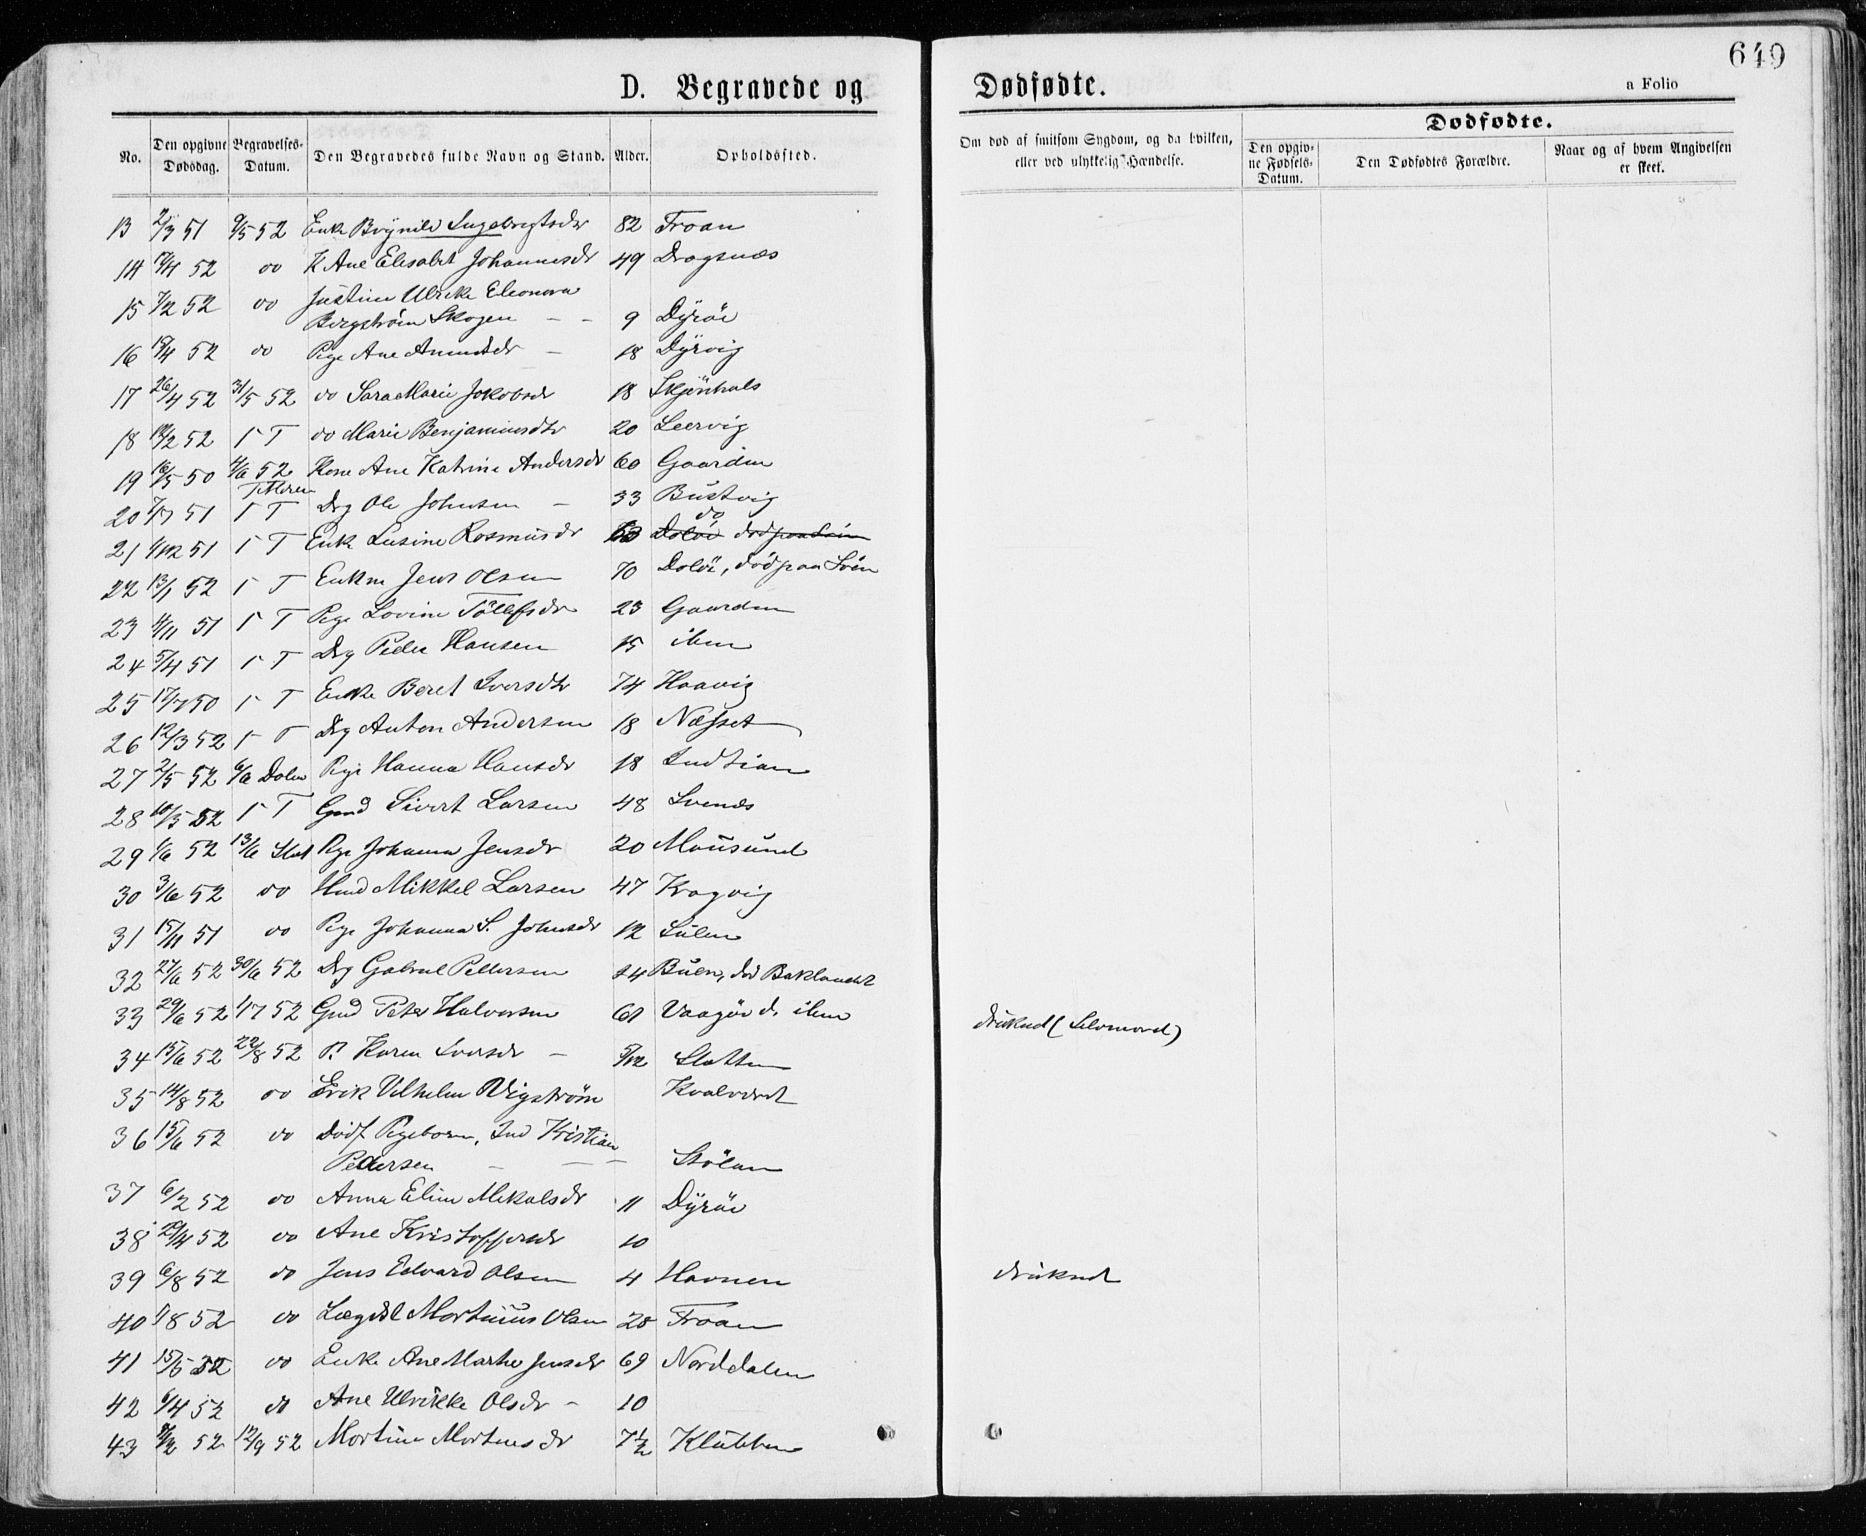 649
D. Begravede og Dødfødte.
a Folio
No. Den opgivne Dødsdag. Begravelses-Datum. Den Begravedes fulde Navn og Stand. Alder. Opholdssted.
Om død af smitsom Sygdom, og da hvilken, eller ved ulykkelig Hændelse.
Dødfødte.
Den opgivne Fødsels-Datum. Den Dødfødtes Forældre. Naar og af hvem Angivelsen er skeet.
13 2/3 51 9/5 52 Enke Ingebrigtsdr 82 Froan
14 52 do K Ane Elisabet Johannesdr 49 Dragsnæs
15 7/2 52 do Justine Ulrike Eleonora
Bergstrøm Skogen - - 9 Dyrøe
16 19/4 52 do Pige Ane Amundsdr - 18 Dyrvig
17 26/4 52 31/5 52 do Sara Marie Jakobsdr 18 Skjönhals
18 52 T do Marie Benjaminsdtr 20 Leervig
19 16/5 50 4/6 52 Kone Ane Katrine Andersdr 60 Gaarden
Titteren
20 51 T Drg Ole Johnsen - 33 Bustvig
do
21 51 T Enke Lusine Rasmusdr Daløe död paa Söen
22 13/1 52 T Enkm Jens Olsen 70 Daløe, död paa Söen
23 4/11 51 T Pige Lovine Töllefsdr 23 Gaarden
24 5/4 51 T Drg Peder Hansen 15 ibm
25 17/7 50 T Enke Beret Iversdtr 74 Haavig
26 12/3 52 T Drg Anton Andersen 18 Næsset
27 2/5 52 6/6 Dolm Pige Hanna Hansdr 18 Indtian
28 10/5 52 T Gmd Sivert Larsen 48 Svenæs
29 1/6 52 13/6 Slet Pige Johanna Jensdr 20 Mausund
30 3/6 52 do Hmd Mikkel Larsen 47 Kragvig
31 15/11 51 do Pige Johanna S. Johnsdr 12 Sulen
32 27/6 52 30/6 52 Drg Gabriel Pettersen 14 Buen, död Baklandet
33 29/6 52 4/7 52 Gmd Peter Halvorsen 61 Vaagöe d. ibm druknet (Selvmord)
34 15/6 52 22/8 52 P. Karen Iversdr - 5/12 Sletten
35 14/8 52 do Erik Vilhelm Vigström Kvalværet
36 15/6 52 do Dödf Pigebarn, Ind Kristian
Pedersen - - - Stölan
37 6/2 52 do Anna Eline Mikalsdr 11 Dyröe
38 29/4 52 do Ane Kristoffersdr 10
39 6/8 52 do Jens Edvard Olsen 4 Havnen druknet
40 1/8 52 do Lægdsl Martinus Olsen 28 Froan
41 15/5 52 do Enke Ane Marthe Jensdr 69 Norddalen
42 6/4 52 do Ane Ulrikke Olsdr - 10
43 52 12/9 52 Martine Mortensdr 7 1/2 Klubben